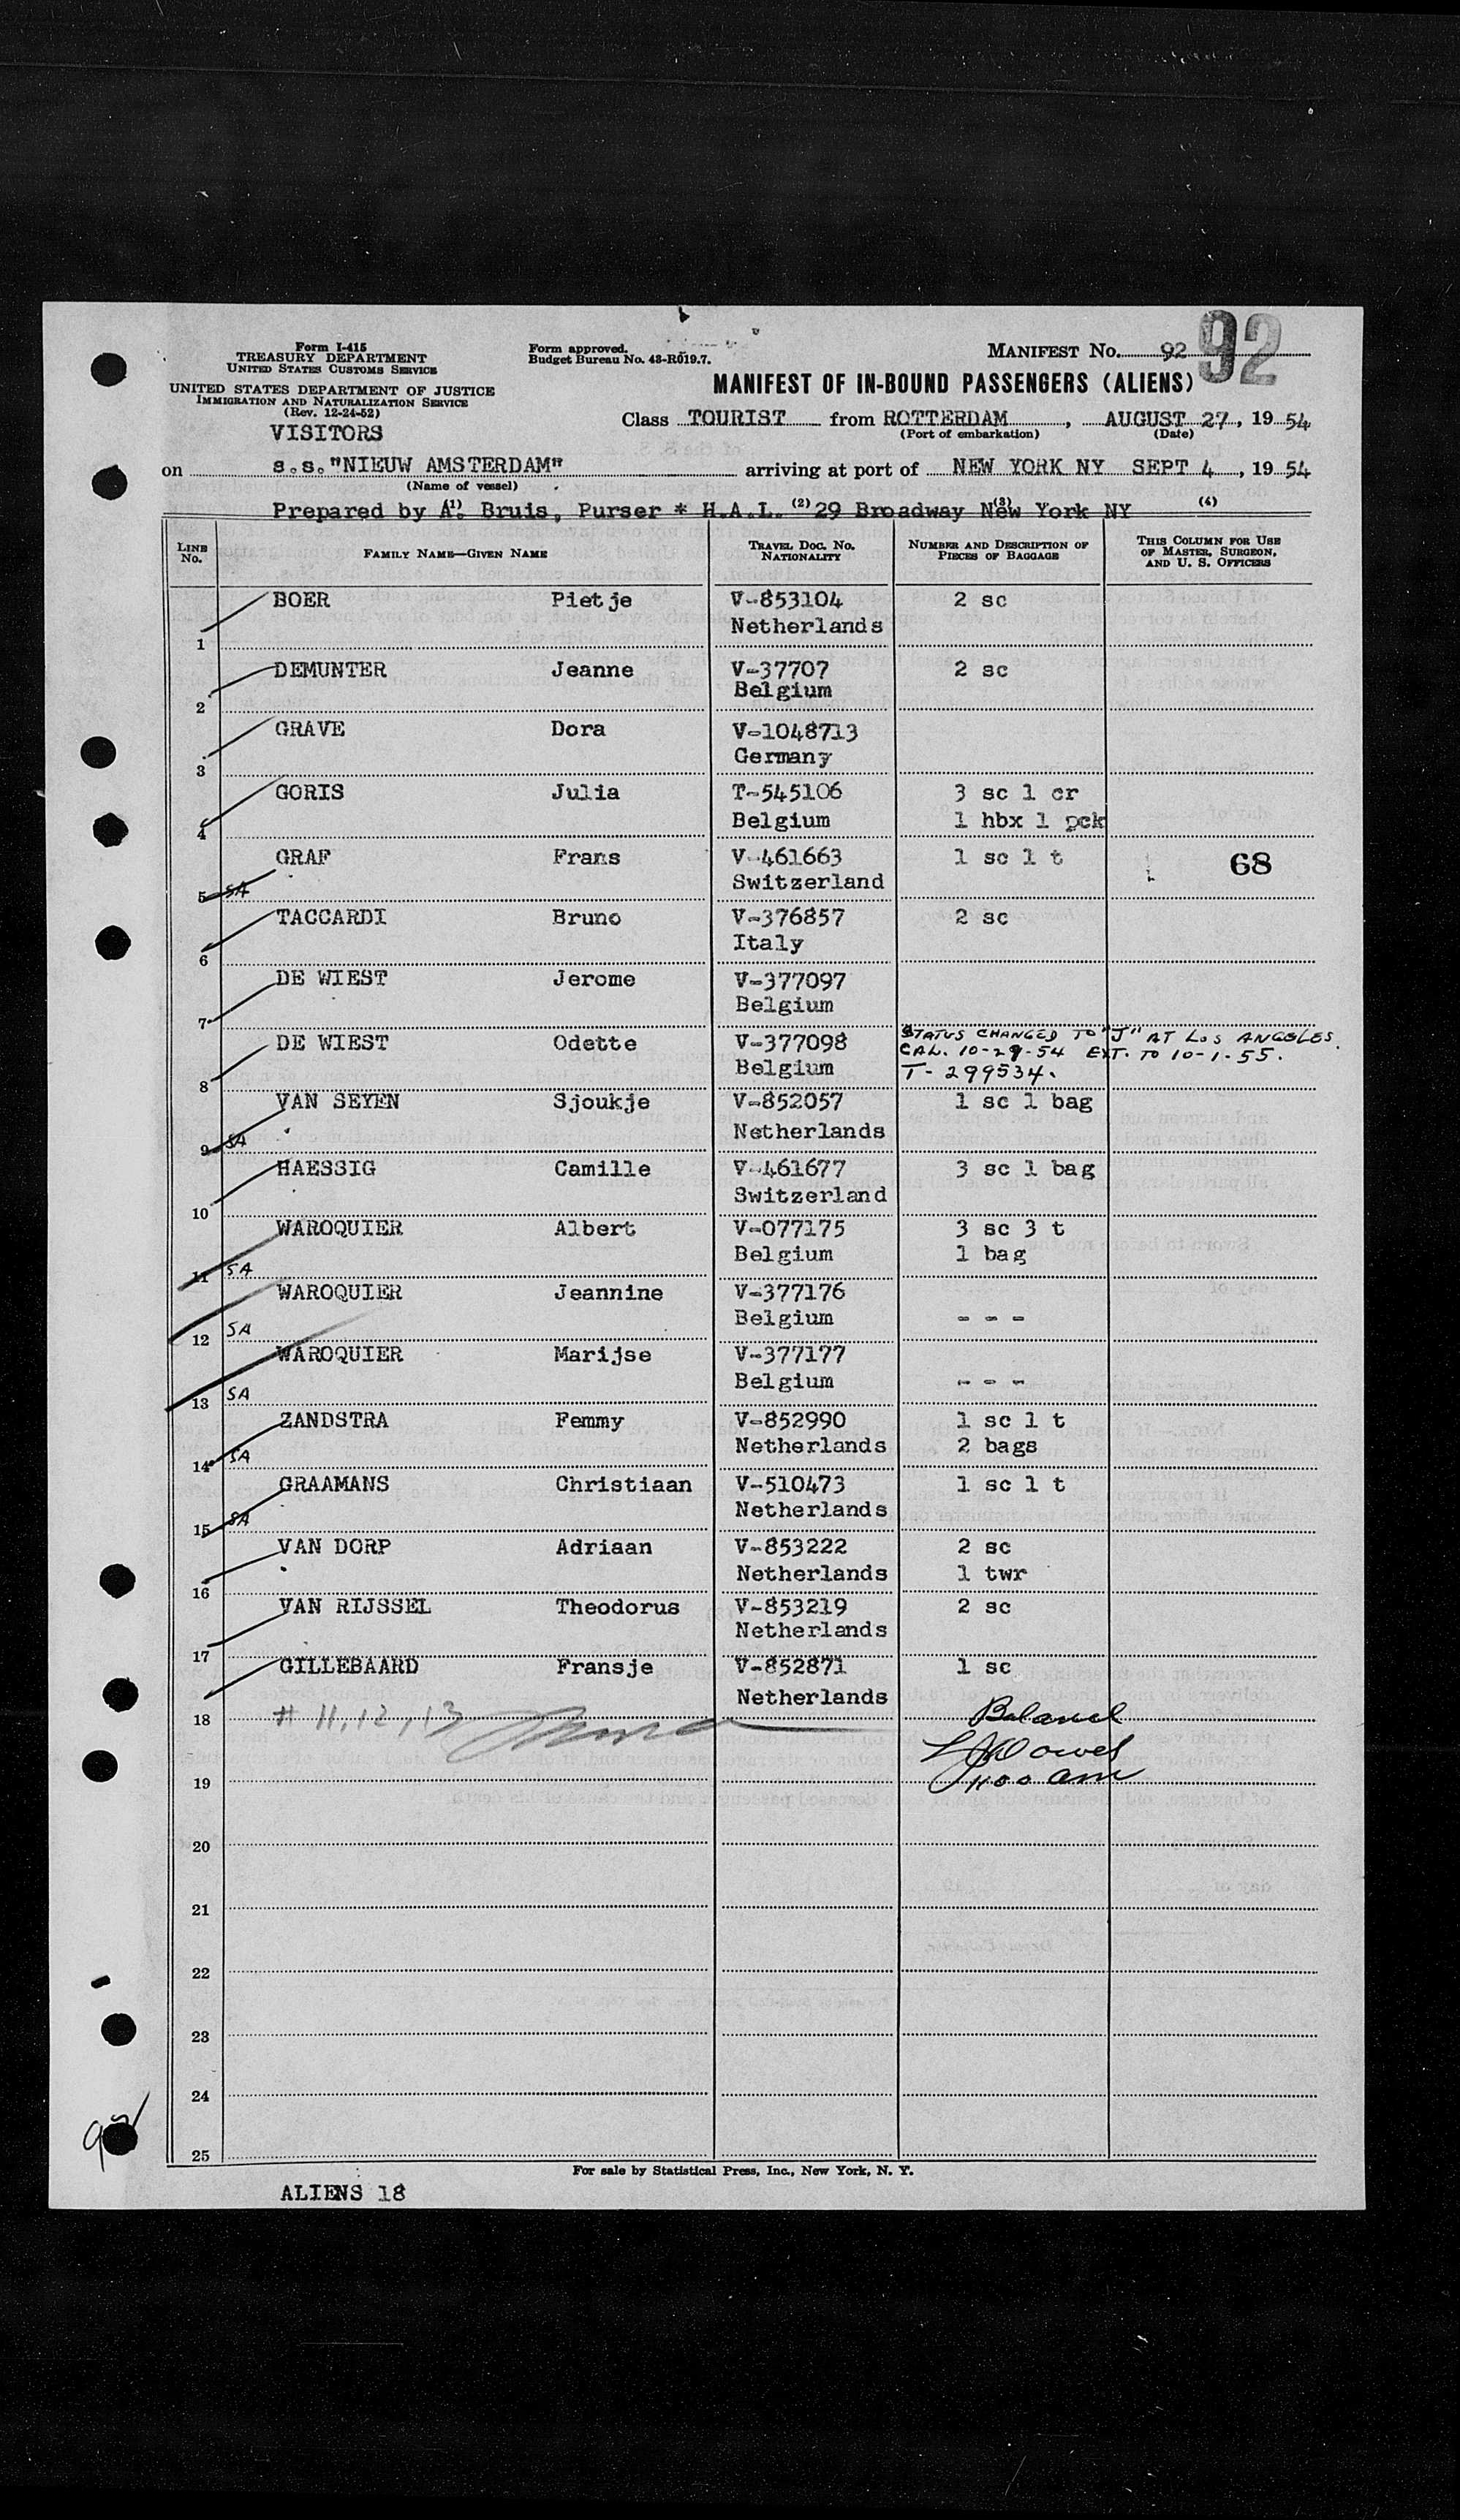 Form I-415
TREASURY DEPARTMENT
UNITED STATES CUSTOMS SERVICE
UNITED STATES DEPARTMENT OF JUSTICE
IMMIGRATION AND NATURALIZATION SERVICE
(Rev. 12-24-52)
VISITORS
Form approved.
Budget Bureau No. 43-R019.7.
MANIFEST NO. 92
92
MANIFEST OF IN-BOUND PASSENGERS (ALIENS)
Class TOURIST from ROTTERDAM, AUGUST 27, 19 54
(Port of embarkation) (Date)
on s.s."NIEUW AMSTERDAM" arriving at port of NEW YORK NY SEPT 4, 19 54
(Name of vessel)
Prepared by A. Bruis, Purser * H.A.L. 29 Broadway New York NY
(1) (2) (3) (4)
LINE NO. FAMILY NAME—GIVEN NAME TRAVEL DOC. NO. NATIONALITY NUMBER AND DESCRIPTION OF PIECES OF BAGGAGE THIS COLUMN FOR USE OF MASTER, SURGEON, AND U. S. OFFICERS
BOER Pietje V-853104 2 sc
1 Netherlands
DEMUNTER Jeanne V-37707 2 sc
2 Belgium
GRAVE Dora V-1048713
3 Germany
GORIS Julia T-545106 3 sc 1 cr
4 Belgium 1 hbx 1 pck
GRAF Frans V-461663 1 sc 1 t 68
5 SA Switzerland
TACCARDI Bruno V-376857 2 sc
6 Italy
DE WIEST Jerome V-377097
7 Belgium
DE WIEST Odette V-377098 STATUS CHANGED TO "J" AT LOS ANGELES.
8 Belgium CAL. 10-29-54 EXT. TO 10-1-55.
T-299534.
VAN SEYEN Sjoukje V-852057 1 sc 1 bag
9 SA Netherlands
HAESSIG Camille V-461677 3 sc 1 bag
10 Switzerland
WAROQUIER Albert V-077175 3 sc 3 t
11 SA Belgium 1 bag
WAROQUIER Jeannine V-377176
12 SA Belgium - - -
WAROQUIER Marijse V-377177
13 SA Belgium - - -
ZANDSTRA Femmy V-852990 1 sc 1 t
14 SA Netherlands 2 bags
GRAAMANS Christiaan V-510473 1 sc 1 t
15 SA Netherlands
VAN DORP Adriaan V-853222 2 sc
16 Netherlands 1 twr
VAN RIJSSEL Theodorus V-853219 2 sc
17 Netherlands
GILLEBAARD Fransje V-852871 1 sc
18 Netherlands
# 11, 12, 13
19 1100 am
20
21
22
23
24
25
For sale by Statistical Press, Inc., New York, N. Y.
ALIENS 18